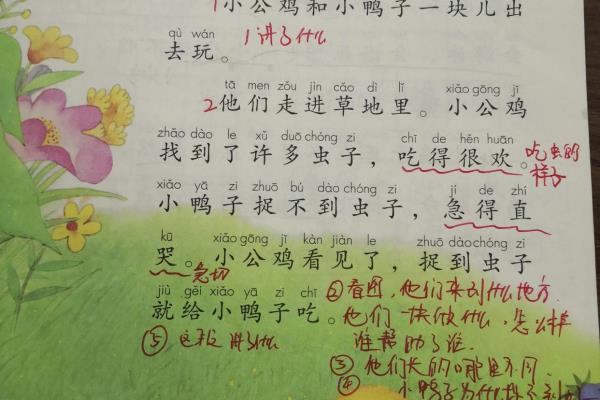 1小公鸡和小鸭子一块儿出
qù wán
去玩。 1讲了什么
tā men zǒu jìn cǎo dì lǐ xiǎo gōng jī
2他们走进草地里。小公鸡
zhǎo dào le xǔ duō chóng zi chī de hěn huān
找到了许多虫子，吃得很欢。吃虫的
样子
xiǎo yā zi zhuō bú dào chóng zi jí de zhí
小鸭子捉不到虫子，急得直
kū xiǎo gōng jī kàn jiàn le zhuō dào chóng zi
哭。小公鸡看见了，捉到虫子
急切
jiù gěi xiǎo yā zi chī ②看图，他们来到什么地方
就给小鸭子吃。他们一块做什么，怎么样
⑤ 这段讲了什么 谁帮助了谁
③他们长的哪里不同
④ 小鸭子为什么